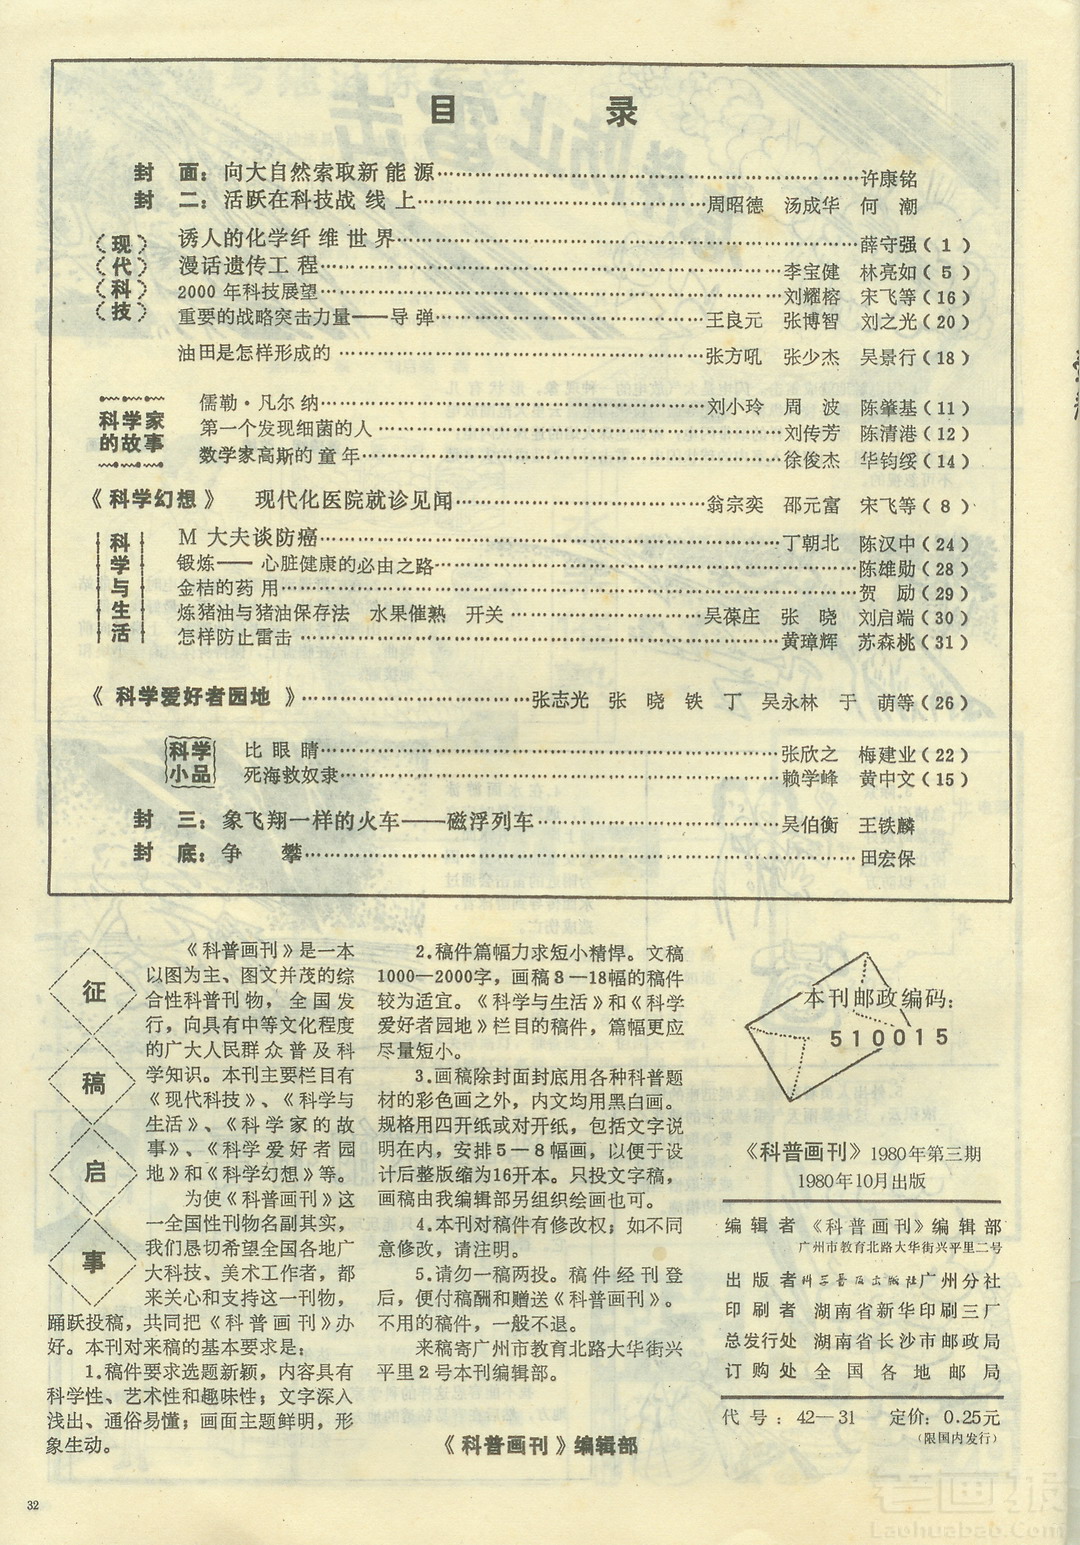 目 录
封 面：向大自然索取新能源……许康铭
封 二：活跃在科技战线上……周昭德 汤成华 何 潮
现代科技
诱人的化学纤维世界……薛守强(1)
漫话遗传工程……李宝健 林亮如(5)
2000年科技展望……刘耀榕 宋飞等(16)
重要的战略突击力量——导弹……王良元 张博智 刘之光(20)
油田是怎样形成的……张方吼 张少杰 吴景行(18)
科学家
的故事
儒勒·凡尔纳……刘小玲 周 波 陈肇基(11)
第一个发现细菌的人……刘传芳 陈清港(12)
数学家高斯的童年……徐俊杰 华钧绥(14)
《科学幻想》 现代化医院就诊见闻……翁宗奕 邵元富 宋飞等(8)
科学与生活
M 大夫谈防癌……丁朝北 陈汉中(24)
锻炼——心脏健康的必由之路……陈雄勋(28)
金桔的药用……贺 励(29)
炼猪油与猪油保存法 水果催熟 开关……吴葆庄 张 晓 刘启端(30)
怎样防止雷击……黄璋辉 苏森桃(31)
《科学爱好者园地》……张志光 张 晓 铁 丁 吴永林 于 萌等(26)
科学
小品
比眼睛……张欣之 梅建业(22)
死海救奴隶……赖学峰 黄中文(15)
封 三：象飞翔一样的火车——磁浮列车……吴伯衡 王铁麟
封 底：争 攀……田宏保
征稿启事
《科普画刊》是一本
以图为主、图文并茂的综
合性科普刊物，全国发
行，向具有中等文化程度
的广大人民群众普及科
学知识。本刊主要栏目有
《现代科技》、《科学与
生活》、《科学家的故
事》、《科学爱好者园
地》和《科学幻想》等。
为使《科普画刊》这
一全国性刊物名副其实，
我们恳切希望全国各地广
大科技、美术工作者，都
来关心和支持这一刊物，
踊跃投稿，共同把《科普画刊》办
好。本刊对来稿的基本要求是：
1.稿件要求选题新颖，内容具有
科学性、艺术性和趣味性；文字深入
浅出、通俗易懂；画面主题鲜明，形
象生动。
2.稿件篇幅力求短小精悍。文稿
1000—2000字，画稿8—18幅的稿件
较为适宜。《科学与生活》和《科学
爱好者园地》栏目的稿件，篇幅更应
尽量短小。
3.画稿除封面封底用各种科普题
材的彩色画之外，内文均用黑白画。
规格用四开纸或对开纸，包括文字说
明在内，安排5—8幅画，以便于设
计后整版缩为16开本。只投文字稿，
画稿由我编辑部另组织绘画也可。
4.本刊对稿件有修改权；如不同
意修改，请注明。
5.请勿一稿两投。稿件经刊登
后，便付稿酬和赠送《科普画刊》。
不用的稿件，一般不退。
来稿寄广州市教育北路大华街兴
平里2号本刊编辑部。
《科普画刊》编辑部
本刊邮政编码：
510015
《科普画刊》1980年第三期
1980年10月出版
编辑者 《科普画刊》编辑部
广州市教育北路大华街兴平里二号
出版者 科学普及出版社广州分社
印刷者 湖南省新华印刷三厂
总发行处 湖南省长沙市邮政局
订购处 全国各地邮局
代号：42—31 定价：0.25元
(限国内发行)
32
老画报
Laohuabao.Com